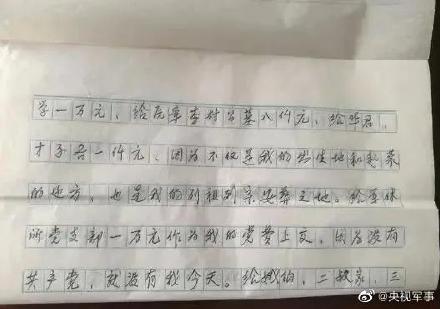 学一万元、给居宰李村公墓八仟元、给华君、
才子各一仟元、因为不仅是我的出生地和我养
的地方，也是我的列祖列宗安葬之地。给干休
所党支部一万元作为我的党费上交，因为没有
共产党，就没有我今天。给娥伯、二叔家、三
@央视军事